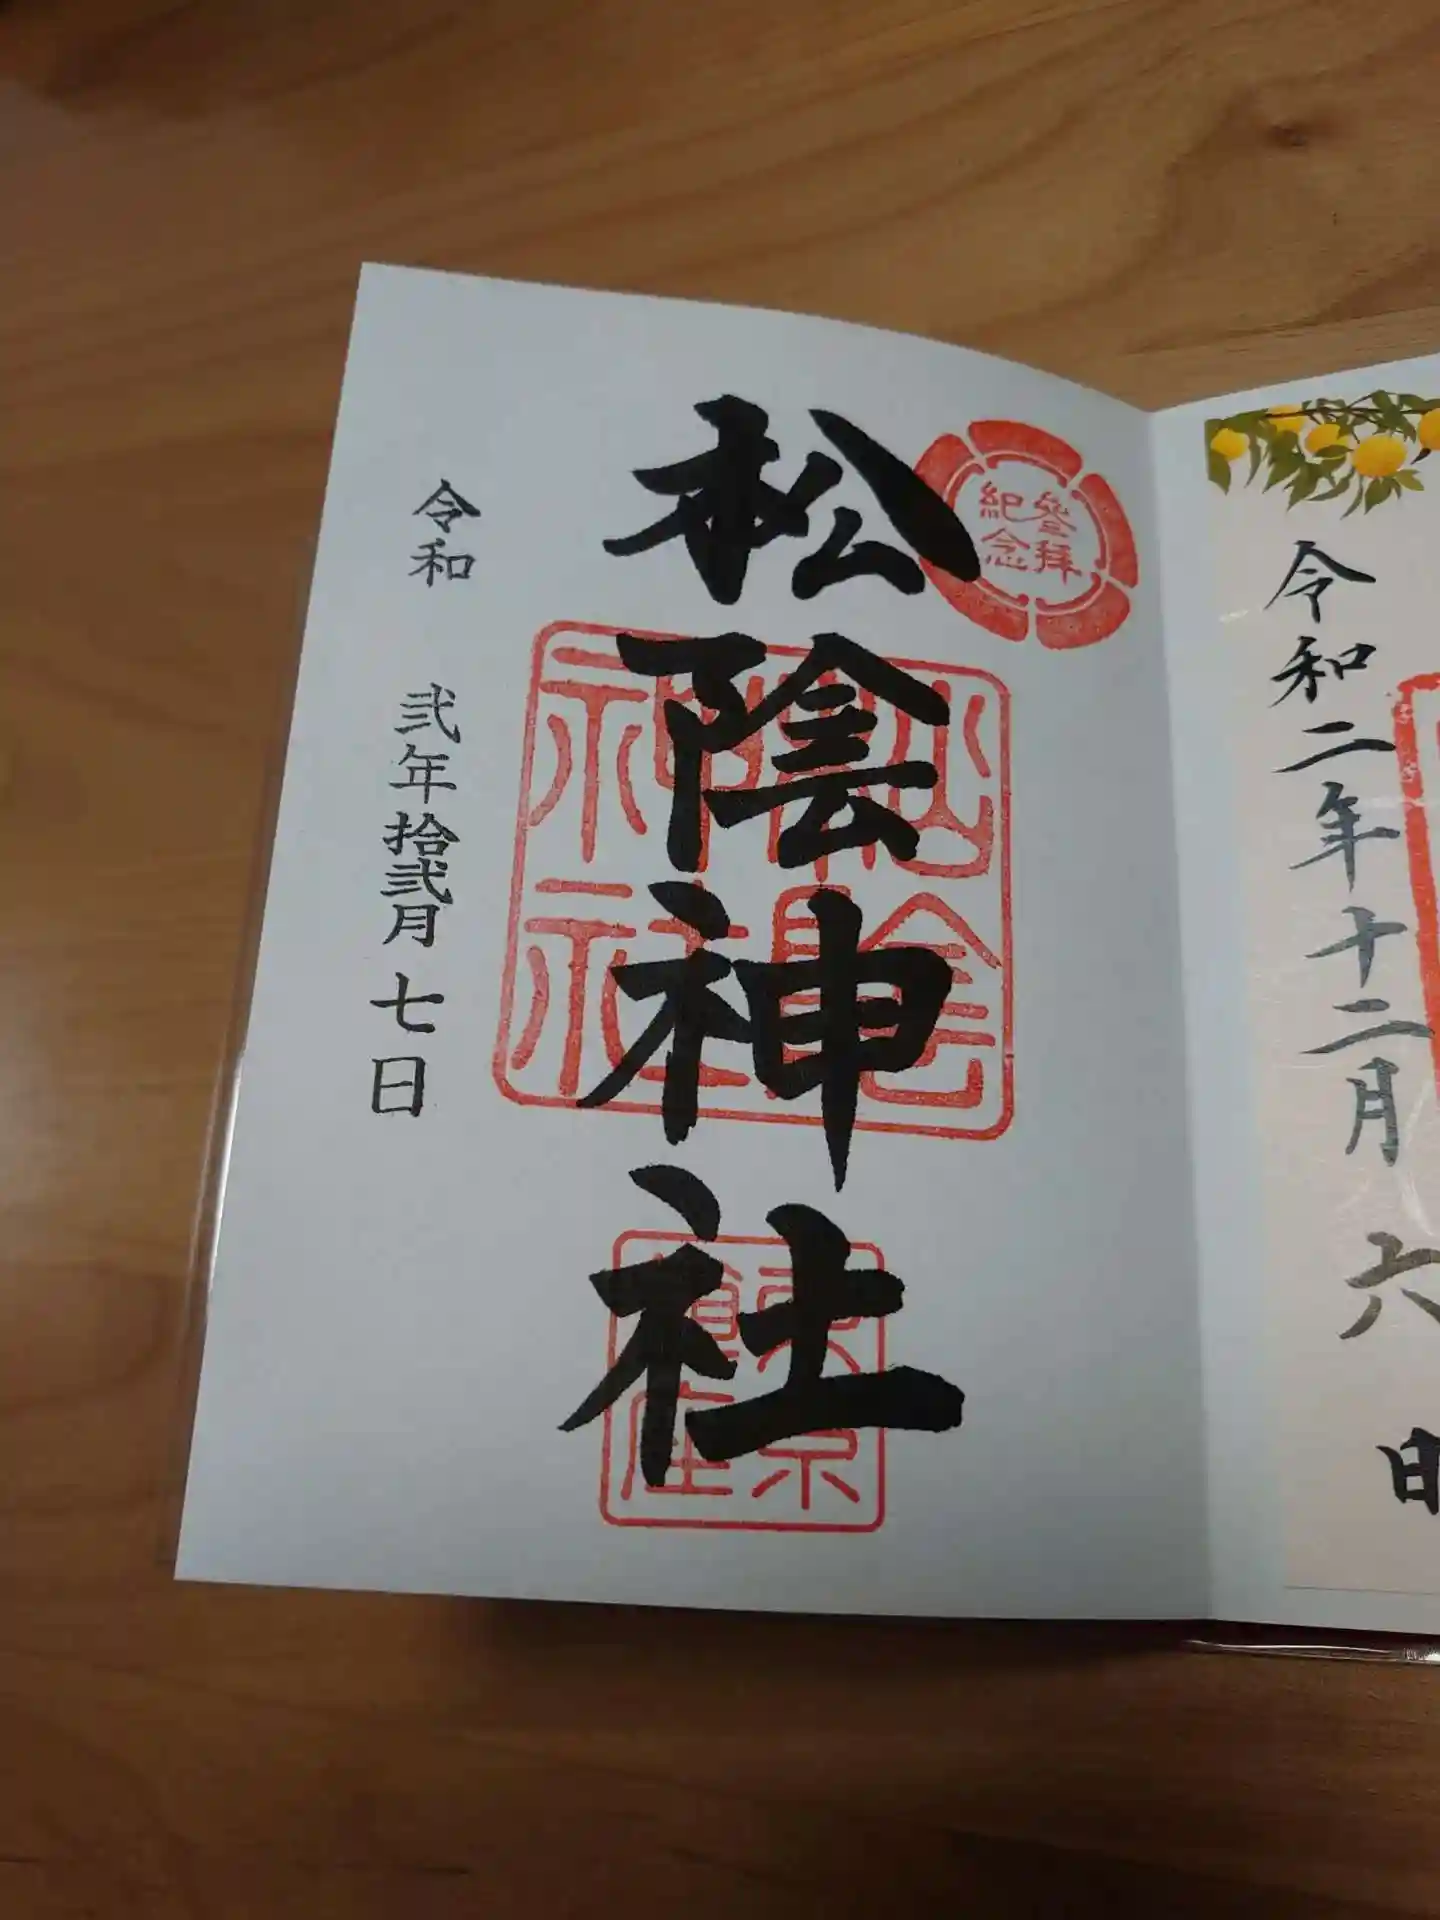 令和二年十二月六日
参拝
紀念
松陰神社
松陰
神社
東京
令和 弐年拾弐月七日